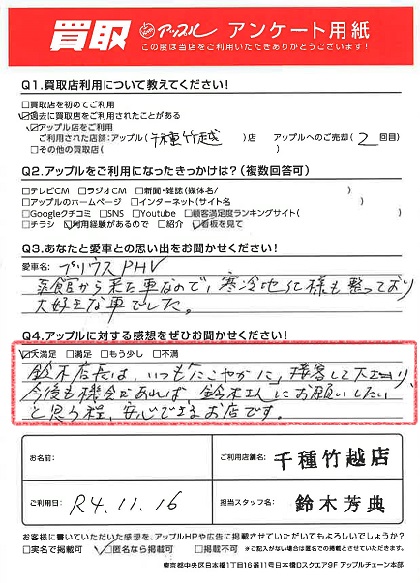 買取 アップル アンケート用紙
この度は当店をご利用いただきありがとうございます!
Q1.買取店利用について教えてください!
□買取店を初めてご利用
☑過去に買取店をご利用されたことがある
☑アップル店をご利用
ご利用された店舗:アップル(千種竹越)店 アップルへのご売却(2回目)
□その他の買取店( )
Q2.アップルをご利用になったきっかけは?(複数回答可)
□テレビCM □ラジオCM □新聞・雑誌(媒体名/ )
□アップルのホームページ □インターネット(サイト名 )
□Googleクチコミ □SNS □Youtube □顧客満足度ランキングサイト( )
□チラシ ☑利用経験があるので □紹介 ☑看板を見て
Q3.あなたと愛車との思い出をお聞かせください!
愛車名:プリウスPHV
函館から来た車なので、寒冷地仕様も整っており
大好きな車でした。
Q4.アップルに対する感想をぜひお聞かせください!
☑大満足 □満足 □もう少し □不満
鈴木店長は、いつもにこやかに、接客して下さり、
今後も機会があれば、鈴木さんにお願いしたい
と思う程、安心できるお店です。
お名前:
ご利用店舗名: 千種竹越店
ご利用日: R4.11.16
担当スタッフ名: 鈴木芳典
お客様に書いていただいた感想を、アップルHPや広告に掲載させていただいてもよろしいでしょうか?
□実名で掲載可 ☑匿名なら掲載可 □掲載不可 ※ご記入がない場合は匿名での掲載とさせていただきます。
東京都中央区日本橋1丁目16番11号日本橋Dスクエア9F アップルチェーン本部